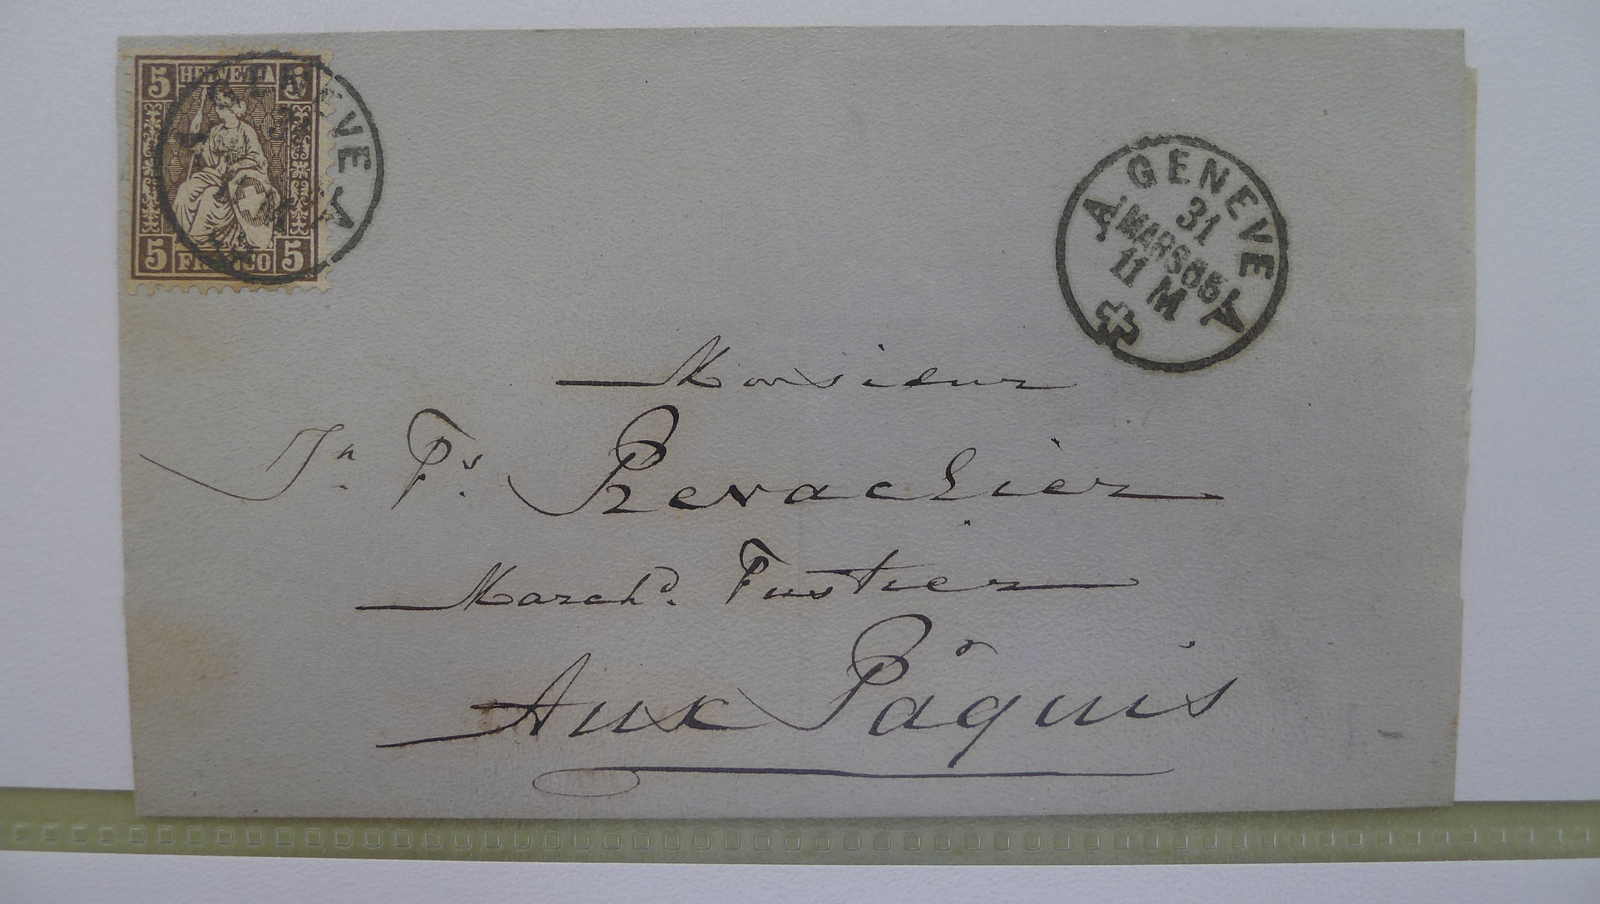 5 HELVETIA 5
5 FRANCO 5
GENEVE
A
A GENEVE A
31
MARS 65
11 M
Monsieur
Jn. Fs. Revaclier
Marchd. Fustier
Aux Pâquis